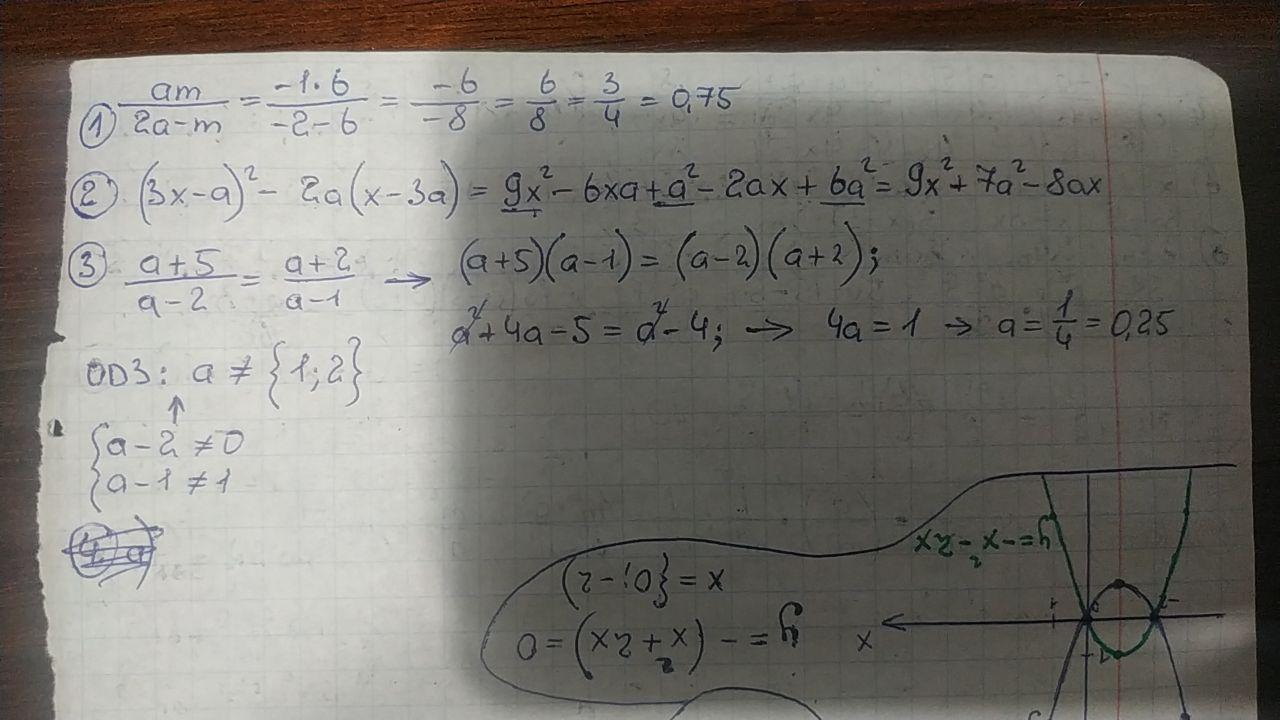 ① am/(2a-m) = (-1·6)/(-2-6) = (-6)/(-8) = 6/8 = 3/4 = 0,75
② (3x-a)² - 2a(x-3a) = 9x² - 6xa + a² - 2ax + 6a² = 9x² + 7a² - 8ax
③ (a+5)/(a-2) = (a+2)/(a-1) → (a+5)(a-1) = (a-2)(a+2);
a² + 4a - 5 = a² - 4; → 4a = 1 → a = 1/4 = 0,25
ОДЗ: a ≠ {1;2}
↑
{a-2 ≠ 0
{a-1 ≠ 1
y = -(x²+2x) = 0
x = {0;-2}
y=-x²-2x
x
1